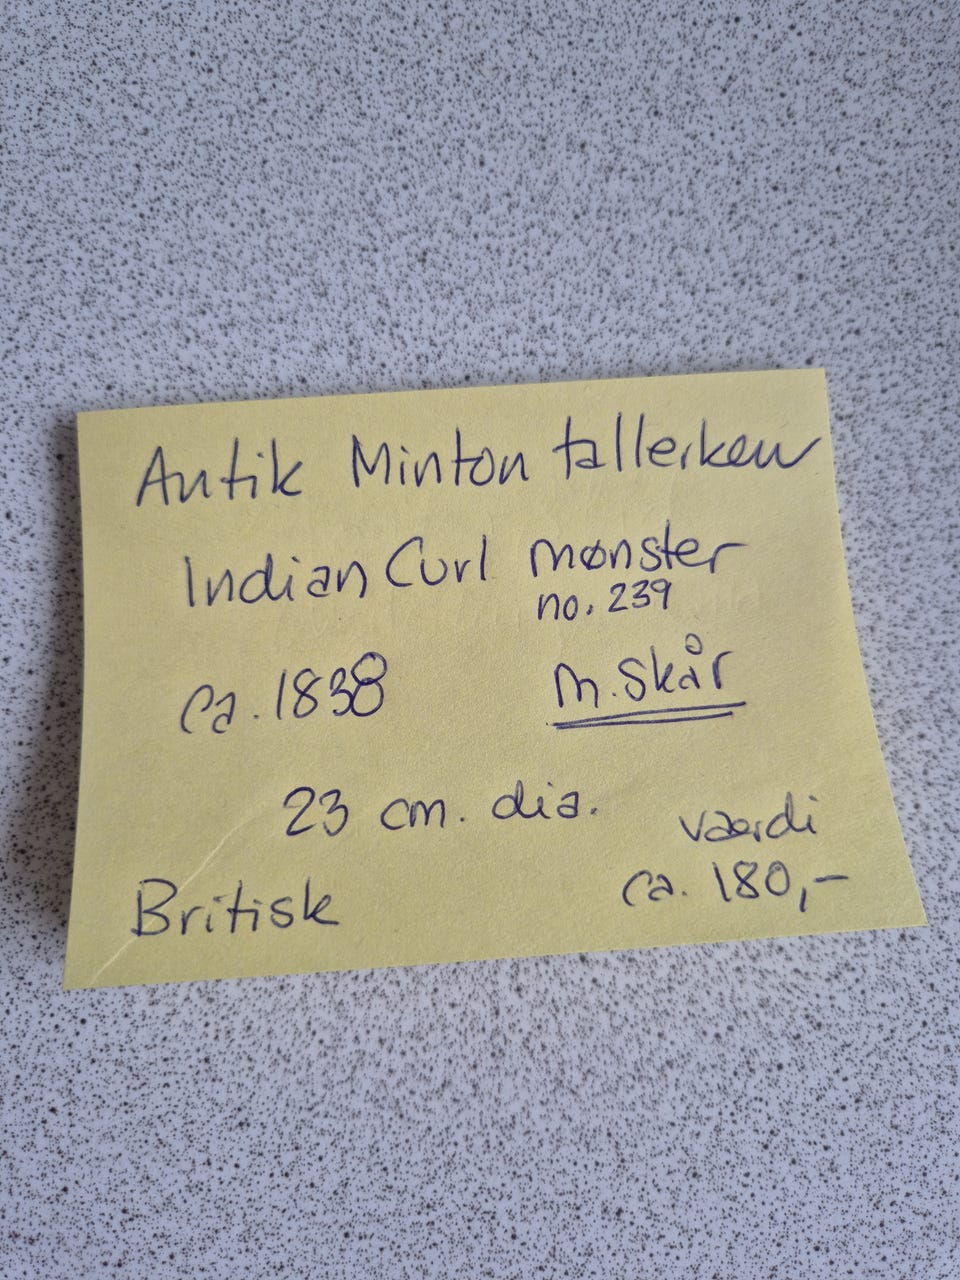 Antik Minton tallerken
Indian Curl mønster
no. 239
ca. 1838
m. skår
23 cm. dia.
værdi
ca. 180,-
Britisk